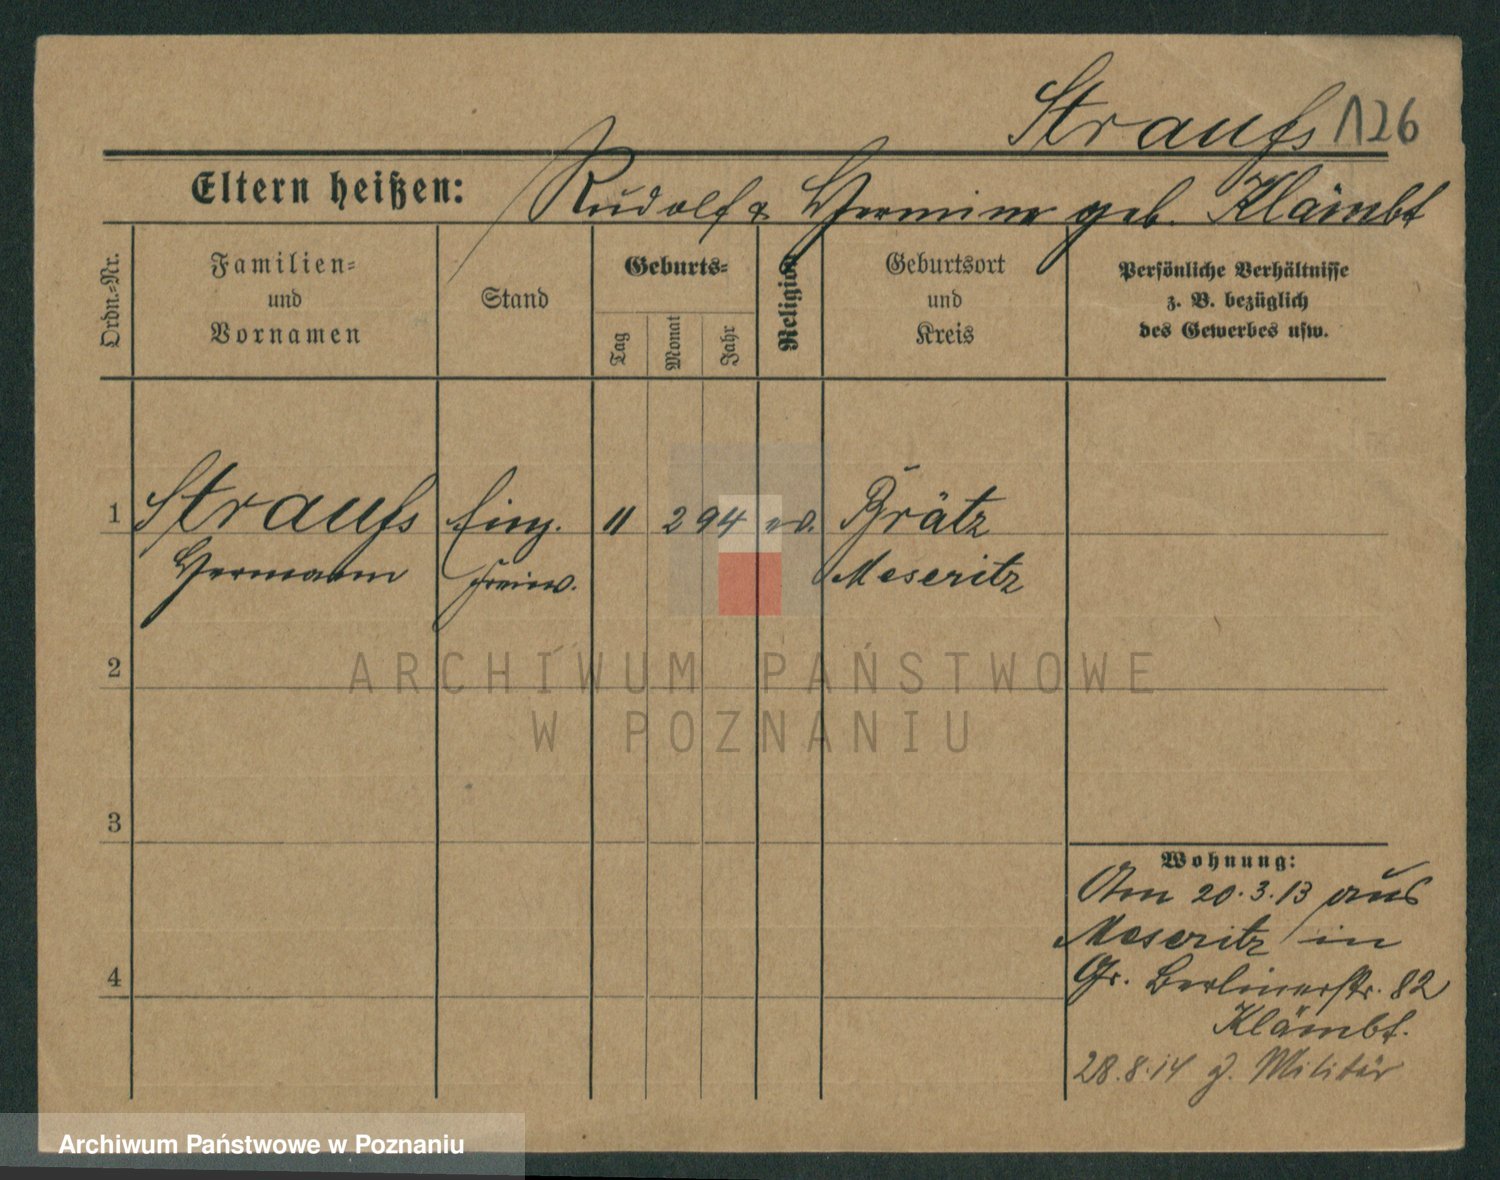 Strauß 126
Eltern heißen: Rudolf & Hermine geb. Klämbt
Ordn.=Nr.
Familien=
und
Vornamen
Stand
Geburts=
Tag
Monat
Jahr
Religion
Geburtsort
und
Kreis
Persönliche Verhältnisse
z. B. bezüglich
des Gewerbes usw.
1 Strauß Einj. 11 2 94 ev. Brätz
Hermann Freiw. Meseritz
2
ARCHIWUM PAŃSTWOWE
W POZNANIU
3
Wohnung:
Am 20.3.13 aus
Meseritz in
4 Gr. Berlinerstr. 82
Klämbt.
28.8.14 z. Militär
Archiwum Państwowe w Poznaniu